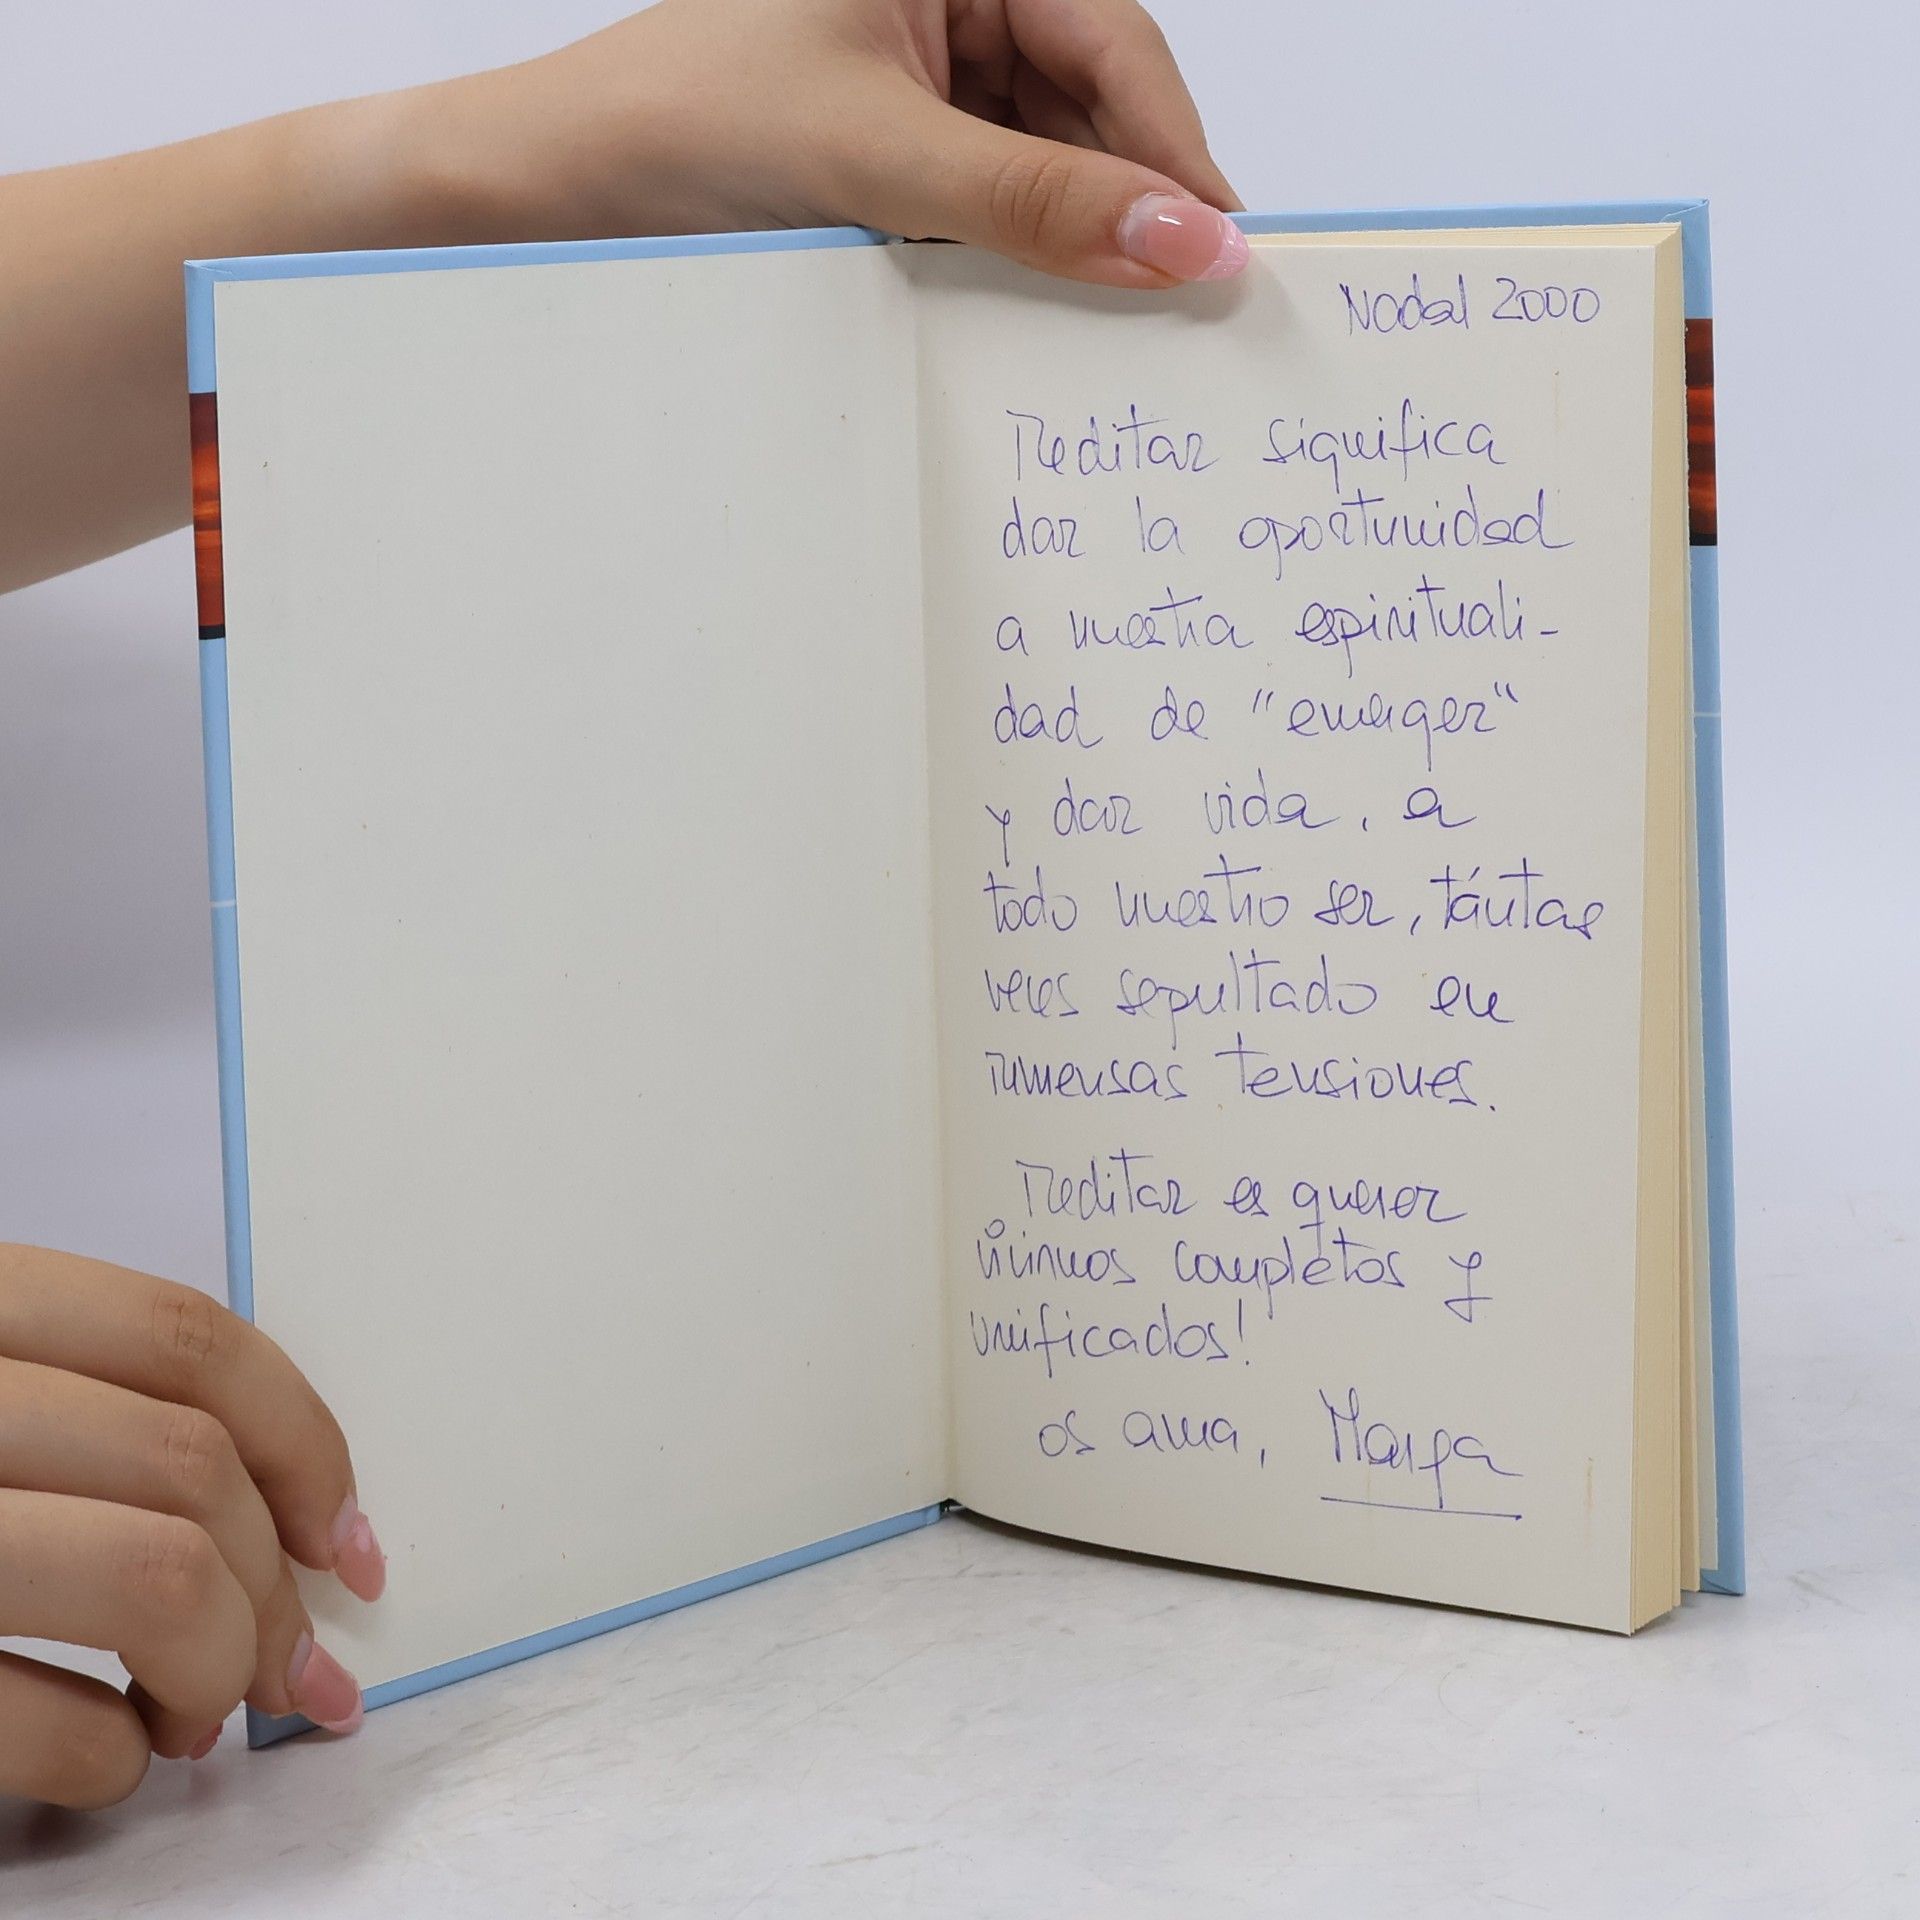 Nadal 2000
Meditar significa
dar la oportunidad
a nuestra espirituali-
dad de "emerger"
y dar vida, a
todo nuestro ser, tántas
veces sepultado en
inmensas tensiones.
Meditar es querer
vivirnos completos y
unificados!
os ama, Marga